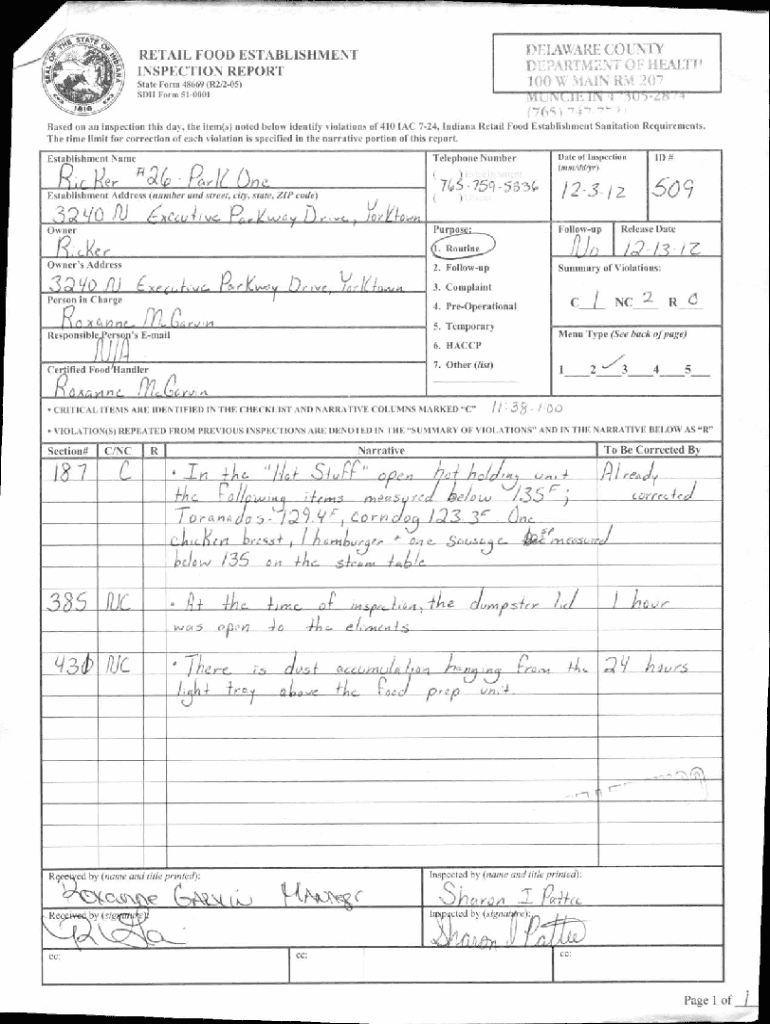 SEAL OF THE STATE OF INDIANA
1816
RETAIL FOOD ESTABLISHMENT
INSPECTION REPORT
State Form 48669 (R2/2-05)
SDH Form 51-0001
DELAWARE COUNTY
DEPARTMENT OF HEALTH
100 W MAIN RM 207
MUNCIE IN 47305-2874
(765) 747-7721
Based on an inspection this day, the item(s) noted below identify violations of 410 IAC 7-24, Indiana Retail Food Establishment Sanitation Requirements.
The time limit for correction of each violation is specified in the narrative portion of this report.
Establishment Name
Ricker #26 - Park One
Telephone Number
( ) Establishment
765-759-5836
( ) Owner
Date of Inspection
(mm/dd/yr)
12-3-12
ID #
509
Establishment Address (number and street, city, state, ZIP code)
3240 N Executive Parkway Drive, Yorktown
Owner
Ricker
Owner's Address
3240 N Executive Parkway Drive, Yorktown
Person in Charge
Roxanne McGarvin
Responsible Person's E-mail
N/A
Certified Food Handler
Roxanne McGarvin
Purpose:
1. Routine
2. Follow-up
3. Complaint
4. Pre-Operational
5. Temporary
6. HACCP
7. Other (list)
Follow-up
No
Release Date
12-13-12
Summary of Violations:
C 1 NC 2 R 0
Menu Type (See back of page)
1 2 ✓ 3 4 5
• CRITICAL ITEMS ARE IDENTIFIED IN THE CHECKLIST AND NARRATIVE COLUMNS MARKED "C" 11:38-1:00
• VIOLATION(S) REPEATED FROM PREVIOUS INSPECTIONS ARE DENOTED IN THE "SUMMARY OF VIOLATIONS" AND IN THE NARRATIVE BELOW AS "R"
Section# C/NC R Narrative To Be Corrected By
187 C • In the "Hot Stuff" open hot holding unit Already
the following items measured below 135F; corrected
Toranados-129.4F, corndog 123.3F. One
chicken breast, 1 hamburger + one sausage measured
below 135 on the steam table
385 NC • At the time of inspection, the dumpster lid 1 hour
was open to the eliments
431 NC • There is dust accumulation hanging from the 24 hours
light tray above the food prep unit.
Received by (name and title printed):
Roxanne Garvin Manager
Inspected by (name and title printed):
Sharon I Pattee
Received by (signature):
Inspected by (signature):
Sharon I Pattee
cc: cc: cc:
Page 1 of 1